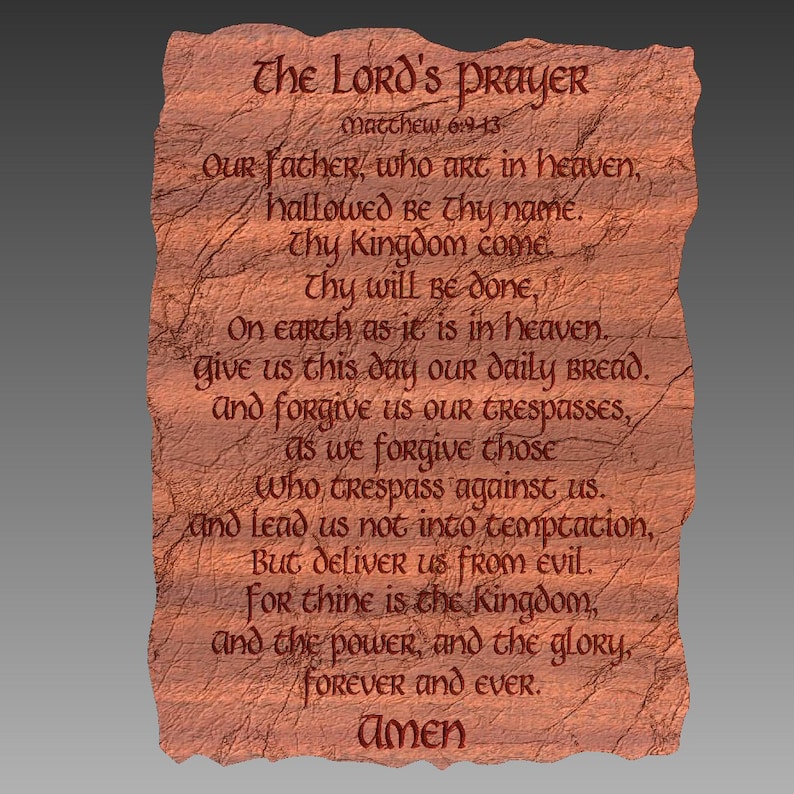 The Lord's Prayer
Matthew 6:9-13
Our Father, who art in heaven,
hallowed be thy name.
Thy Kingdom come.
Thy will be done,
On earth as it is in heaven.
Give us this day our daily bread.
And forgive us our trespasses,
As we forgive those
Who trespass against us.
And lead us not into temptation,
But deliver us from evil.
For thine is the Kingdom,
And the power, and the glory,
forever and ever.
Amen